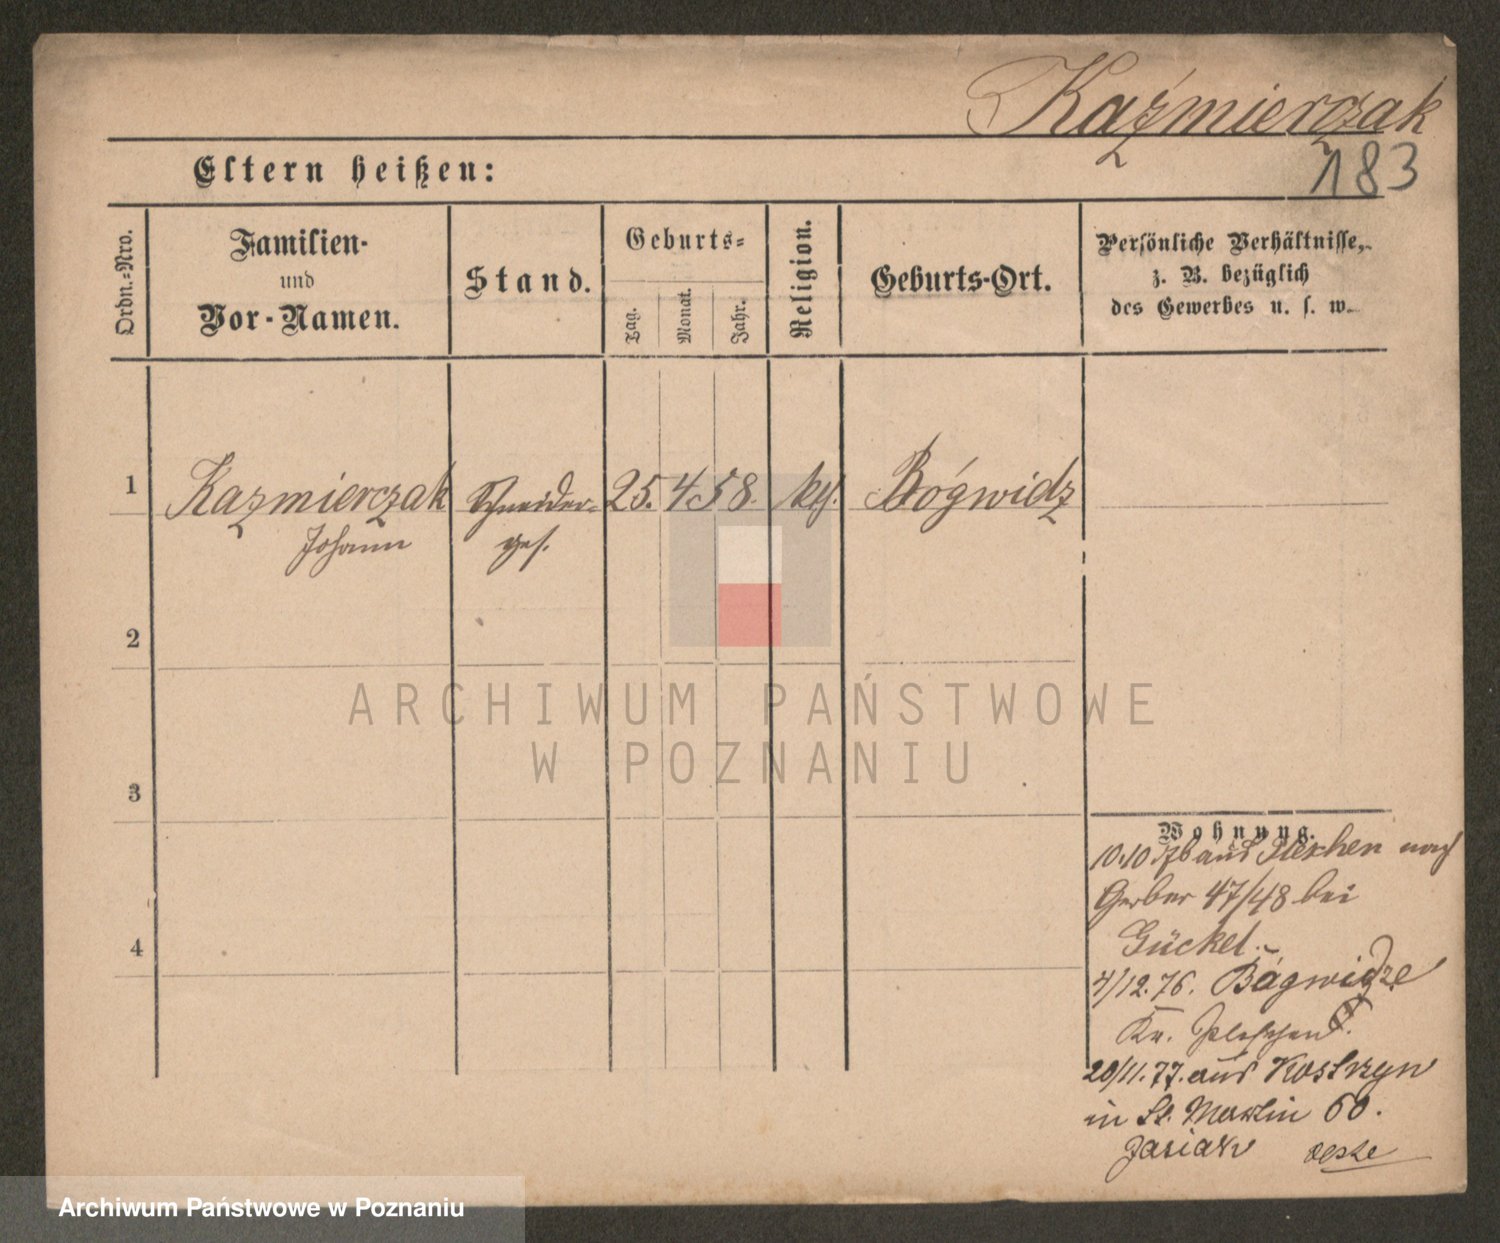 Kaźmierczak
183
Eltern heißen:
Ordn.-Nro.
Familien-
und
Vor-Namen.
Stand.
Geburts-
Tag.
Monat.
Jahr.
Religion.
Geburts-Ort.
Persönliche Verhältnisse,
z. B. bezüglich
des Gewerbes u. s. w.
1
Kazmierczak
Johann
Schneider-
ges.
25. 4. 58.
kth.
Bógwidz
2
ARCHIWUM PAŃSTWOWE
W POZNANIU
3
Wohnung.
10.10 76 aus Pleschen nach
Gerber 47/48 bei
Gückel.
4
4/12.76. Bógwidze
Kr. Pleschen
20/11.77. aus Kostrzyn
in St. Martin 60.
Jasiak
Archiwum Państwowe w Poznaniu